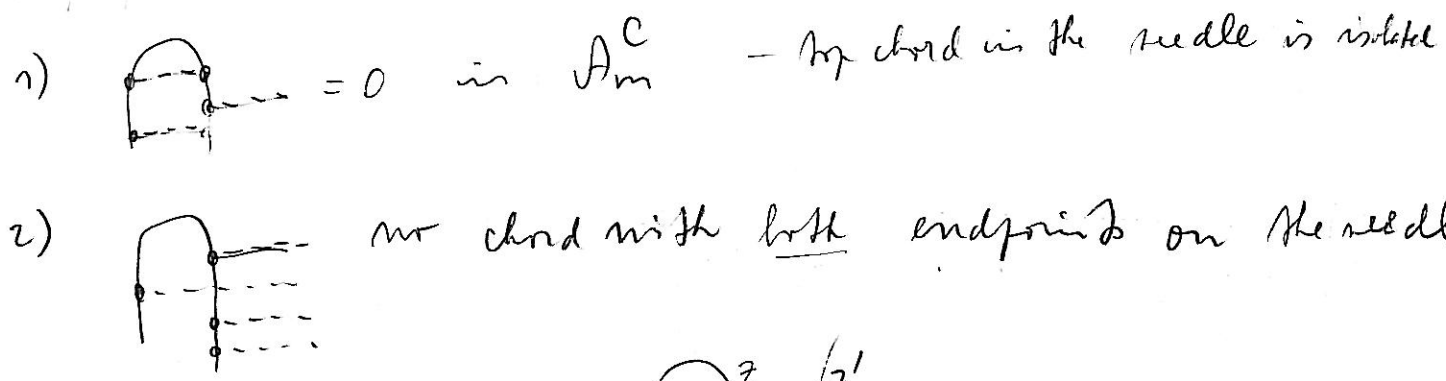 1) = 0 in A_m^C - top chord in the needle is isolated
2) no chord with both endpoints on the needl
z z'